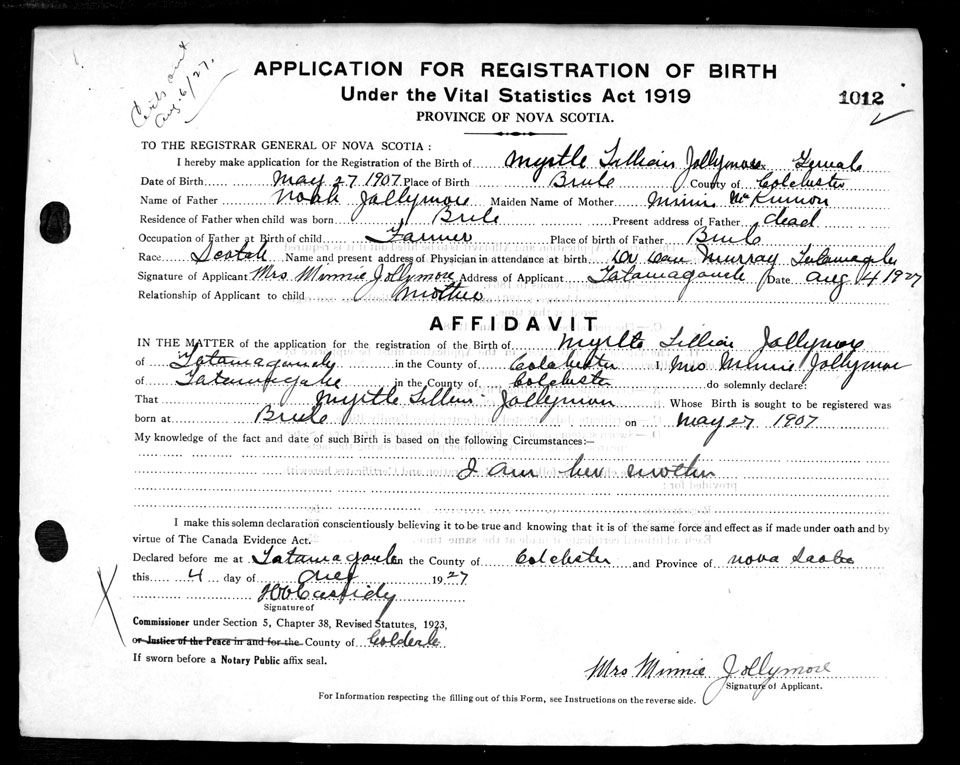 Cert sent
Aug. 6/27.
APPLICATION FOR REGISTRATION OF BIRTH
Under the Vital Statistics Act 1919
1012
PROVINCE OF NOVA SCOTIA.
TO THE REGISTRAR GENERAL OF NOVA SCOTIA :
I hereby make application for the Registration of the Birth of Myrtle Lillian Jollymore Sex Female
Date of Birth May 27 1907 Place of Birth Brule County of Colchester
Name of Father Noah Jollymore Maiden Name of Mother Minnie McKinnon
Residence of Father when child was born Brule Present address of Father dead
Occupation of Father at Birth of child Farmer Place of birth of Father Brule
Race Scotch Name and present address of Physician in attendance at birth Dr Dan Murray Tatamagche
Signature of Applicant Mrs Minnie Jollymore Address of Applicant Tatamagouche Date Aug 4 1927
Relationship of Applicant to child Mother
AFFIDAVIT
IN THE MATTER of the application for the registration of the Birth of Myrtle Lillian Jollymore
of Tatamagouche in the County of Colchester I, Mrs Minnie Jollymore
of Tatamagouche in the County of Colchester do solemnly declare:
That Myrtle Lillian Jollymore Whose Birth is sought to be registered was
born at Brule on May 27 1907
My knowledge of the fact and date of such Birth is based on the following Circumstances:—
I am her mother
I make this solemn declaration conscientiously believing it to be true and knowing that it is of the same force and effect as if made under oath and by
virtue of The Canada Evidence Act.
Declared before me at Tatamagouche in the County of Colchester and Province of Nova Scotia
this 4 day of Aug 1927
Cassidy
Signature of
Commissioner under Section 5, Chapter 38, Revised Statutes, 1923,
or Justice of the Peace in and for the County of
If sworn before a Notary Public affix seal.
Mrs Minnie Jollymore
Signature of Applicant.
For Information respecting the filling out of this Form, see Instructions on the reverse side.